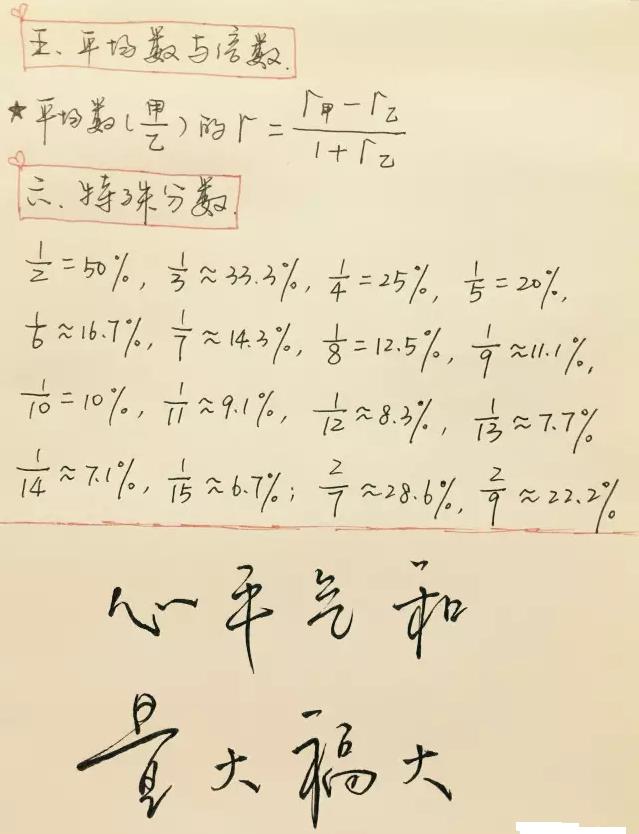 五、平均数与倍数.
★平均数(甲/乙)的r = (r甲-r乙)/(1+r乙)
六、特殊分数.
1/2=50%, 1/3≈33.3%, 1/4=25%, 1/5=20%,
1/6≈16.7%, 1/7≈14.3%, 1/8=12.5%, 1/9≈11.1%,
1/10=10%, 1/11≈9.1%, 1/12≈8.3%, 1/13≈7.7%
1/14≈7.1%, 1/15≈6.7%; 2/7≈28.6%, 2/9≈22.2%
心平气和
量大福大